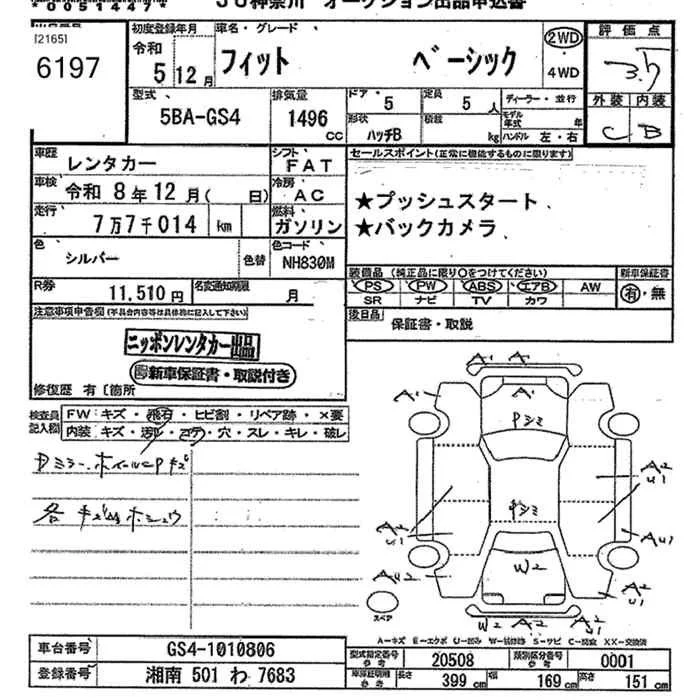 *0051447*
JU神奈川 オークション出品申込書
[2165]
6197
初度登録年月
令和
5年12月
車名・グレード
フィット ベーシック
2WD
・
4WD
評価点
3.5
外装 内装
C B
型式
5BA-GS4
排気量
1496 cc
ドア
5
定員
5 人
形状
ハッチB
積載
kg
ディーラー・並行
モデル年式 年
ハンドル 左・右
車歴
レンタカー
シフト
FAT
車検
令和 8年12月( 日)
冷房
AC
走行
7万7千014 km
燃料
ガソリン
色
シルバー
色替
色コード
NH830M
セールスポイント(正常に機能するものに限ります)
★プッシュスタート
★バックカメラ
R券
11,510円
名変通知期限
月
装備品(純正品に限り○をつけてください)
PS PW ABS エアB AW
SR ナビ TV カワ
新車保証書
有・無
後日品
保証書・取説
注意事項申告欄(不具合内容等は具体的に記入して下さい)
ニッポンレンタカー出品
新車保証書・取説付き
修復歴 有[箇所
検査員
記入欄
FW:キズ・飛石・ヒビ割・リペア跡・×要
内装:キズ・汚れ・コゲ・穴・スレ・キレ・破レ
各
A' A
A'
A'
Pシミ
A2
U1
A2
U1
AU1
AU2
W2
A2
U1
W2 A2
スペア
A-キズ E-エクボ U-凹み W-補修跡 S-サビ C-腐食 XX-交換済
車台番号
GS4-1010806
登録番号
湘南 501 わ 7683
型式指定番号
参考
20508
類別区分番号
参考
0001
車庫証明用
参考
長さ
399 cm
幅
169 cm
高さ
151 cm